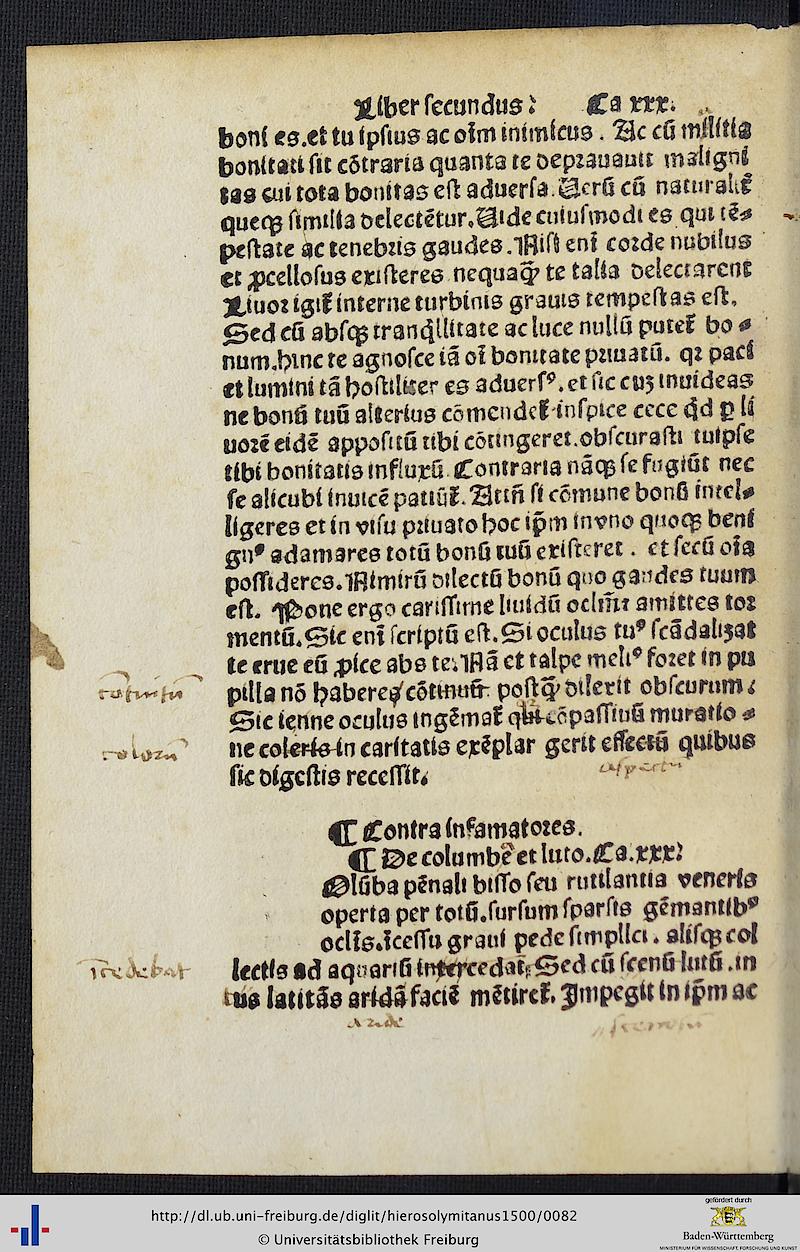 Liber secundus: Ca xxx.
boni es.et tu ipsius ac oīm inimicus . Ac cū militia
bonitati sit cōtraria quanta te deprauauit maligni
tas cui tota bonitas est aduersa. Uerū cū naturalit̄
queqꝫ similia delectētur. Uide cuiusmodi es qui tē⸗
pestate ac tenebris gaudes. Nisi enī corde nubilus
et ꝓcellosus existeres nequaq̄ te talia delectarent
Liuor igit̄ interne turbinis grauis tempestas est.
Sed cū absqꝫ tranq̇llitate ac luce nullū putet̄ bo⸗
num.hinc te agnosce iā oī bonitate priuatū. qꝛ paci
et lumini tā hostiliter es aduersꝰ.et sic cuꝫ inuideas
ne bonū tuū alterius cōmendet̄ inspice ecce q̇d ꝑ li
uorē eidē appositū tibi cōtingeret.obscurasti tuipse
tibi bonitatis influxū. Contraria nāqꝫ se fugiūt nec
se alicubi inuicē patiūt̄. Attn̄ si cōmune bonū intel⸗
ligeres et in visu priuato hoc ip̄m in vno quoqꝫ beni
gnꝰ adamares totū bonū tuū existeret . et secū oīa
possideres. Nimirū dilectū bonū quo gaudes tuum
est. Pone ergo carissime liuidū oclm̄ ꝛ amittes tor
mentū. Sic enī scriptū est. Si oculus tuꝰ scādalizat
te erue eū ꝓice abs te. Nā et talpe meliꝰ foret in pu
pilla nō haberes cōtinuū postq̄ dilexit obscurum:
Sic ienne oculus ingēmat̄ qui cōpassiuū muratio⸗
ne coleris in caritatis exēplar gerit effectū quibus
sic digestis recessit.
colorū
aspectū
¶ Contra infamatores.
¶ De columba et luto. Ca.xxxi
Olūba pēnali bisso seu rutilantia veneris
operta per totū.sursum sparsis gēmantibꝰ
oclis.īcessu graui pede simplici . alisqꝫ col
lectis ad aquariū intercedat. Sed cū scenū lutū .in
īcedebat
tus latitās aridā faciē mētiret̄. Impegit in ip̄m ac
aride
http://dl.ub.uni-freiburg.de/diglit/hierosolymitanus1500/0082
© Universitätsbibliothek Freiburg
gefördert durch
Baden-Württemberg
MINISTERIUM FÜR WISSENSCHAFT, FORSCHUNG UND KUNST